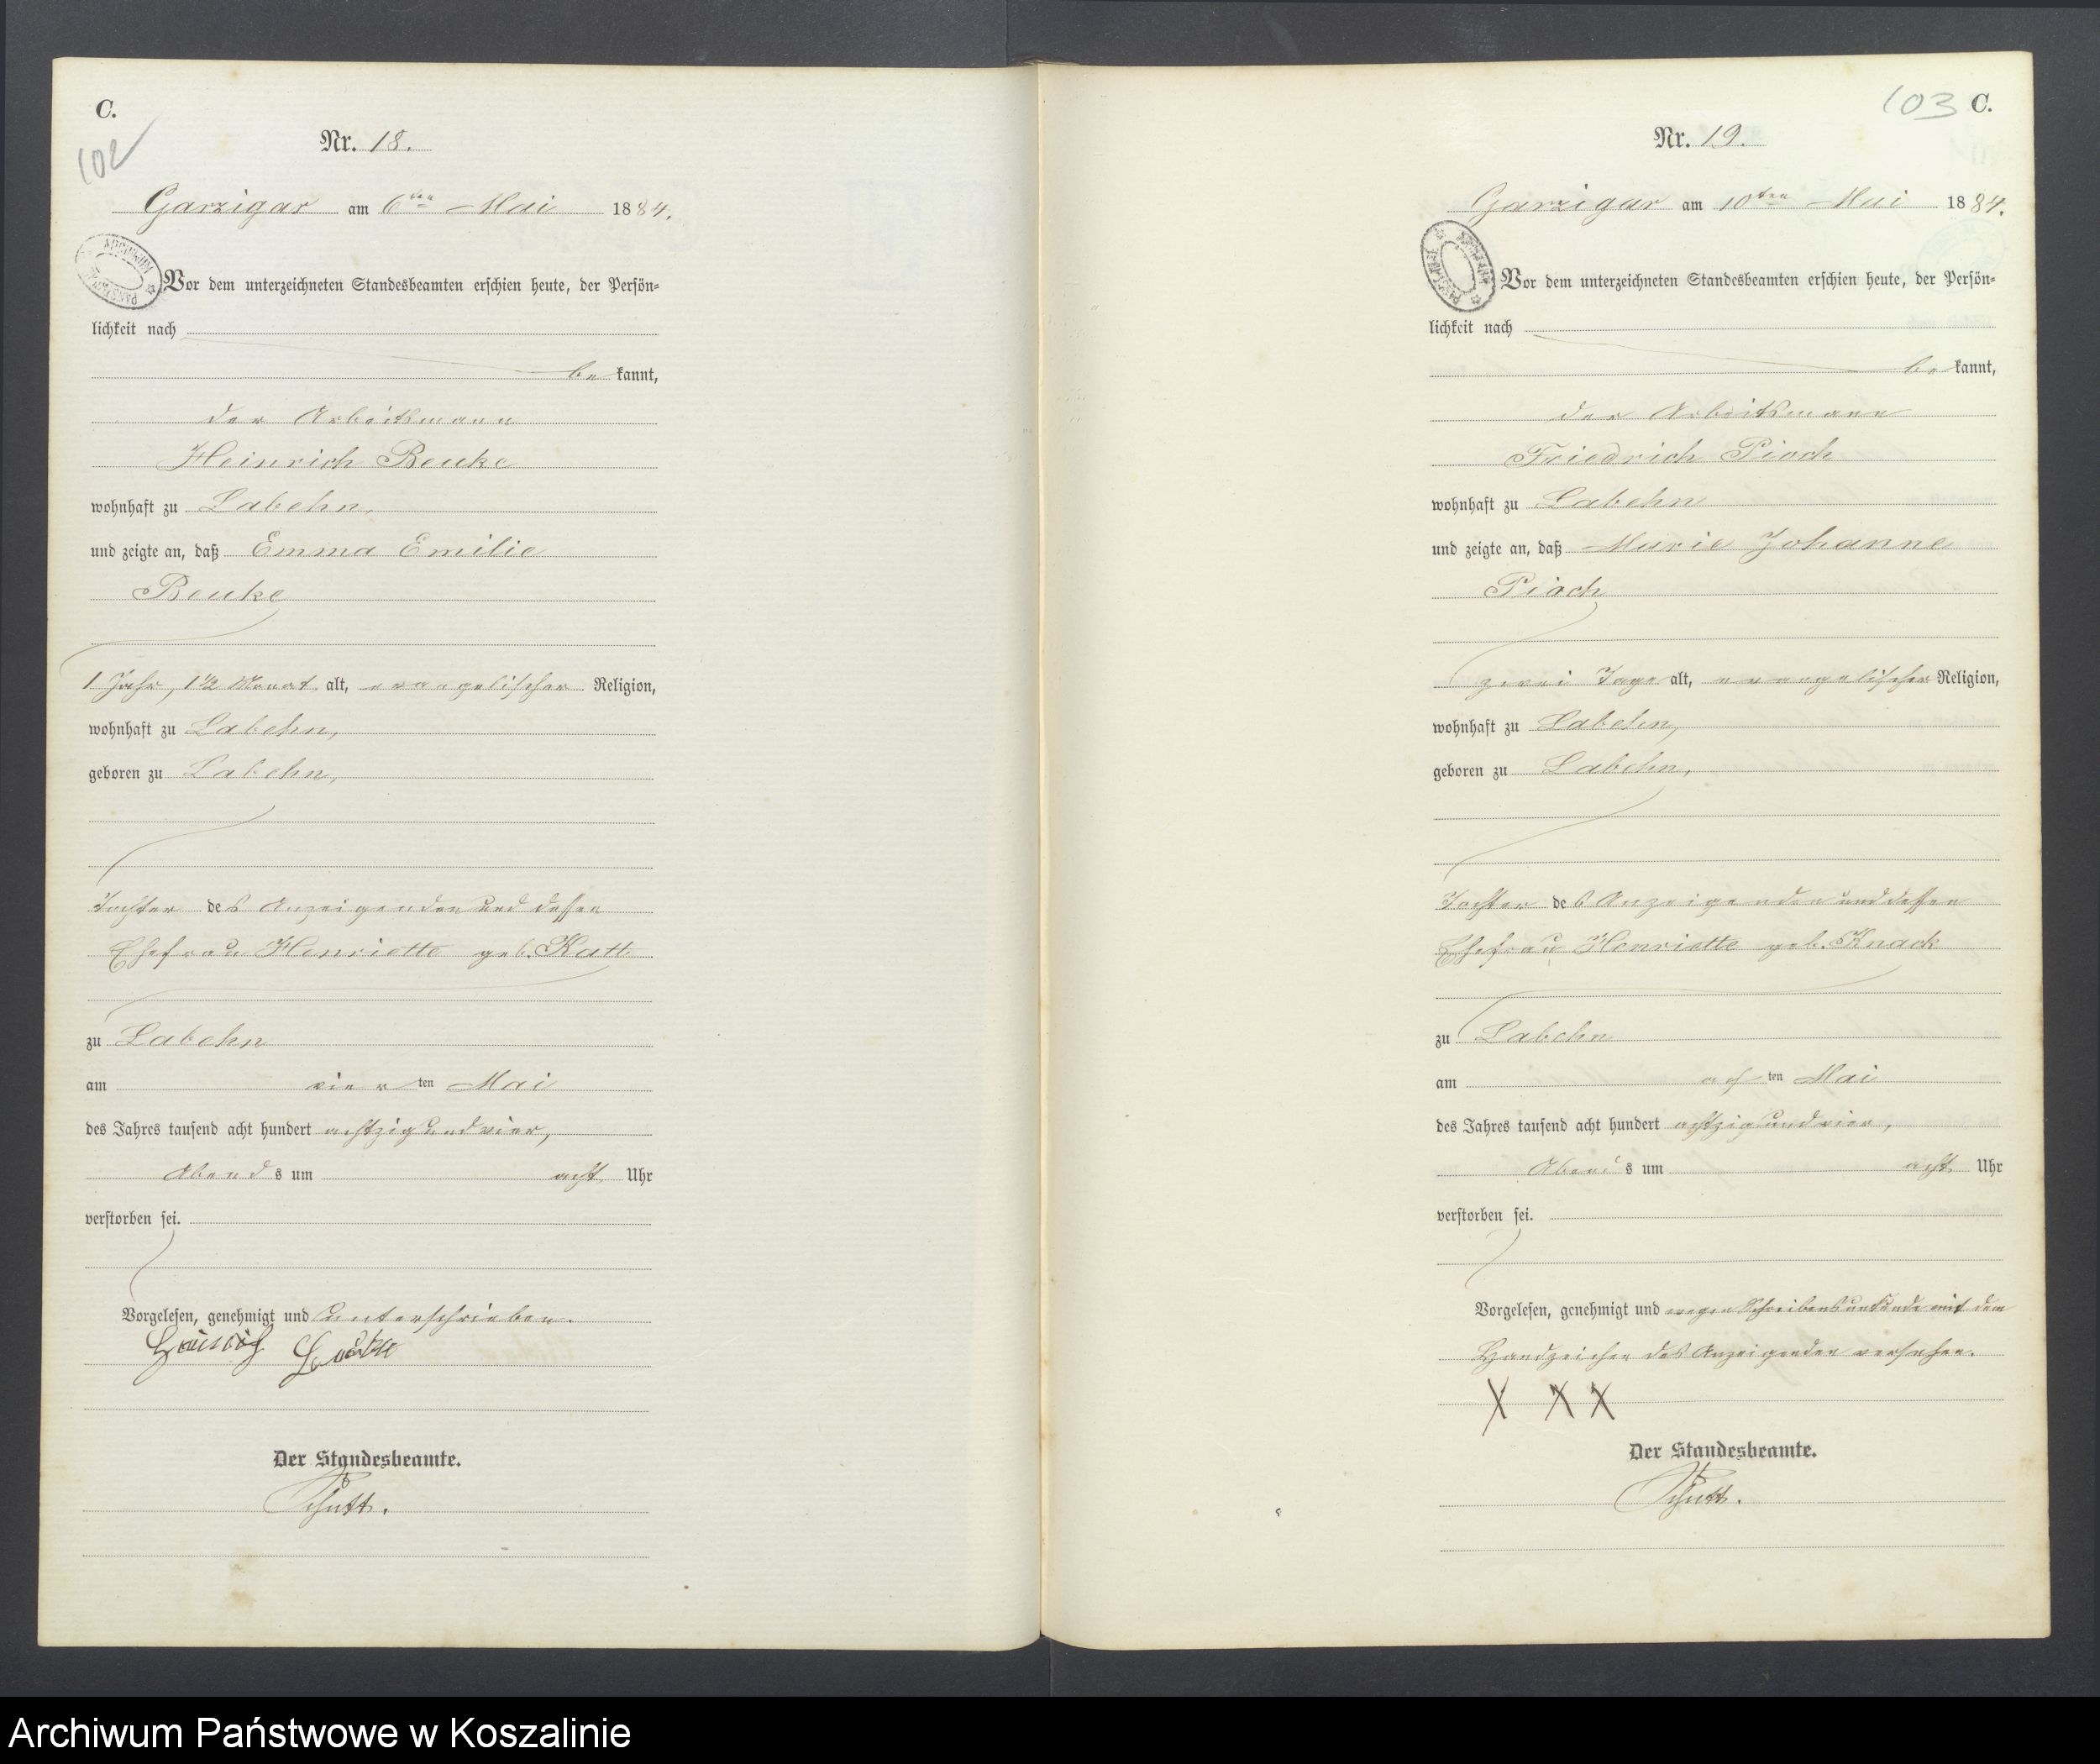 C.
102
Nr. 18.
Garzigar am 6ten Mai 1884.
Vor dem unterzeichneten Standesbeamten erschien heute, der Persön-
lichkeit nach
be kannt,
der Arbeitsmann
Heinrich Beuke
wohnhaft zu Labehn,
und zeigte an, daß Emma Emilie
Beuke
1 Jahr, 1 1/2 Monat alt, evangelischer Religion,
wohnhaft zu Labehn,
geboren zu Labehn,
Tochter des Anzeigenden und dessen
Ehefrau Henriette geb. Katt
zu Labehn
am vier ten Mai
des Jahres tausend acht hundert achtzig und vier,
Abends um acht Uhr
verstorben sei.
Vorgelesen, genehmigt und unterschrieben.
Heinrich
Der Standesbeamte.
Schutt.
103 C.
Nr. 19.
Garzigar am 10ten Mai 1884.
ARCHIWUM PAŃSTWOWE
Vor dem unterzeichneten Standesbeamten erschien heute, der Persön-
lichkeit nach
be kannt,
der Arbeitsmann
Friedrich Pioch
wohnhaft zu Labehn
und zeigte an, daß Marie Johanne
Pioch
zwei Tage alt, evangelischer Religion,
wohnhaft zu Labehn,
geboren zu Labehn,
Tochter des Anzeigenden und dessen
Ehefrau Henriette geb. Knack
zu Labehn
am ach ten Mai
des Jahres tausend acht hundert achtzig und vier,
Abends um acht Uhr
verstorben sei.
Vorgelesen, genehmigt und wegen Schreibensunkunde mit dem
Handzeichen des Anzeigenden versehen.
X X X
Der Standesbeamte.
Schutt.
Archiwum Państwowe w Koszalinie